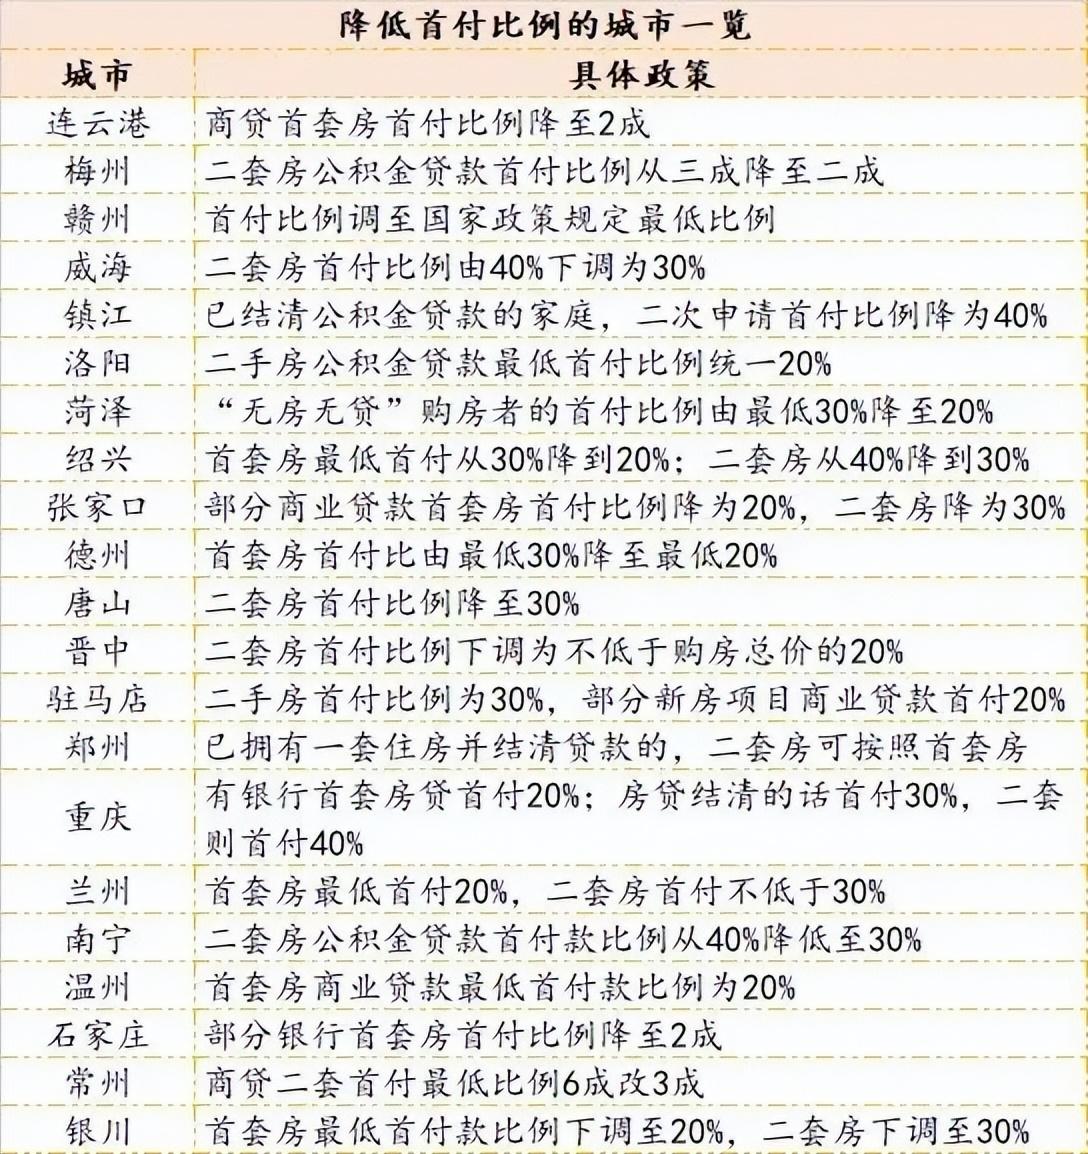 降低首付比例的城市一览
城市 具体政策
连云港 商贷首套房首付比例降至2成
梅州 二套房公积金贷款首付比例从三成降至二成
赣州 首付比例调至国家政策规定最低比例
威海 二套房首付比例由40%下调为30%
镇江 已结清公积金贷款的家庭，二次申请首付比例降为40%
洛阳 二手房公积金贷款最低首付比例统一20%
菏泽 “无房无贷”购房者的首付比例由最低30%降至20%
绍兴 首套房最低首付从30%降到20%；二套房从40%降到30%
张家口 部分商业贷款首套房首付比例降为20%，二套房降为30%
德州 首套房首付比由最低30%降至最低20%
唐山 二套房首付比例降至30%
晋中 二套房首付比例下调为不低于购房总价的20%
驻马店 二手房首付比例为30%，部分新房项目商业贷款首付20%
郑州 已拥有一套住房并结清贷款的，二套房可按照首套房
重庆 有银行首套房贷首付20%；房贷结清的话首付30%，二套
则首付40%
兰州 首套房最低首付20%，二套房首付不低于30%
南宁 二套房公积金贷款首付款比例从40%降低至30%
温州 首套房商业贷款最低首付款比例为20%
石家庄 部分银行首套房首付比例降至2成
常州 商贷二套首付最低比例6成改3成
银川 首套房最低首付款比例下调至20%，二套房下调至30%